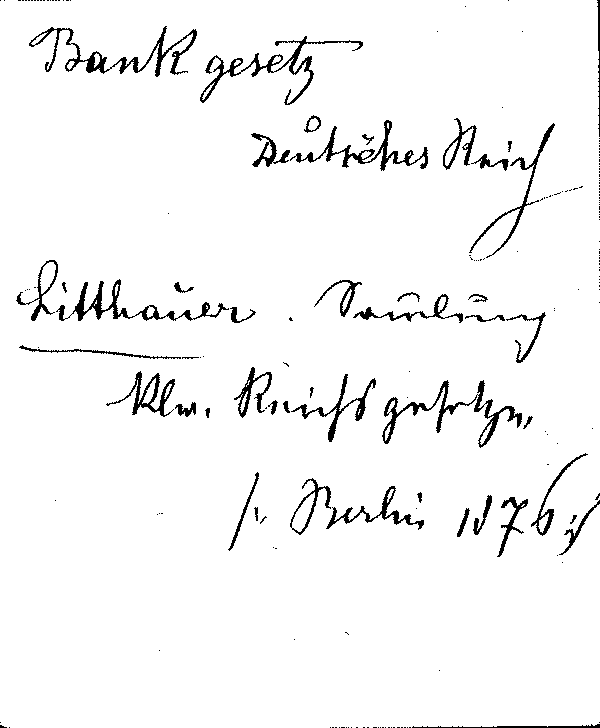 Bankgesetz
Deutsches Reich
Litthauer. Samlung
klr. Reichsgesetze.
/: Berlin 1876 :/